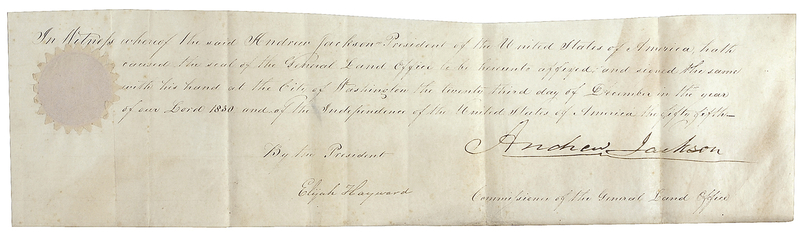 In Witness whereof the said Andrew Jackson President of the United States of America, hath
caused the seal of the General Land Office to be hereunto affixed, and signed the same
with his hand at the City of Washington the twenty third day of December in the year
of our Lord 1830 and of the Independence of the United States of America the fifty fifth—
By the President
Andrew Jackson
Elijah Hayward
Commissioner of the General Land Office